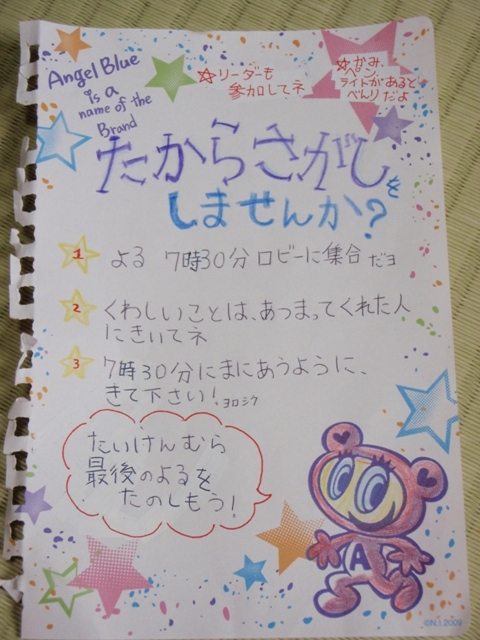 Angel Blue
is a
name of the
Brand
☆リーダーも
参加してネ
☆かみ、
ペン、
ライトがあると
べんりだよ
たからさがしを
しませんか?
1 よる 7時30分 ロビーに集合 だヨ
2 くわしいことは、あつまってくれた人
にきいてネ
3 7時30分にまにあうように、
きて下さい! ヨロシク
たいけんむら
最後のよるを
たのしもう!
A
©N.I.2009